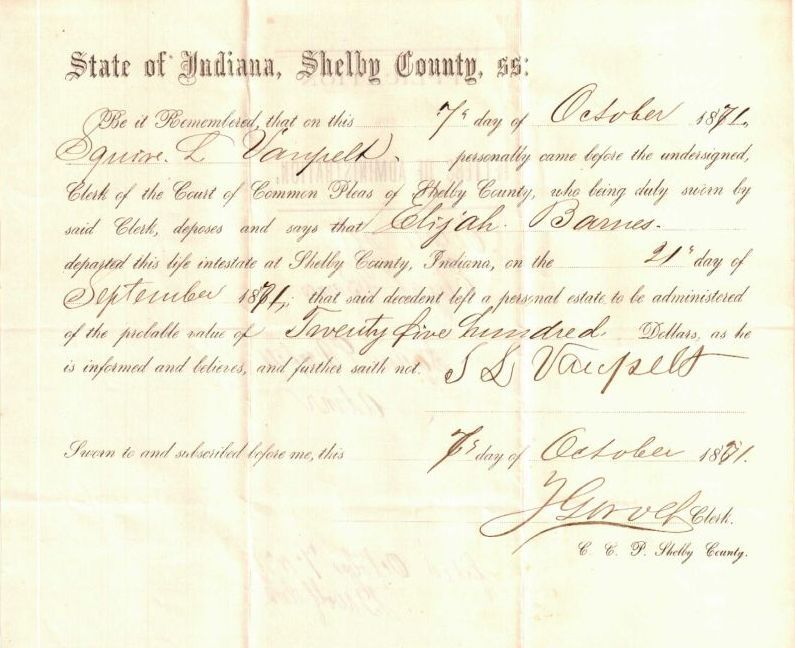 State of Indiana, Shelby County, ss:
Be it Remembered, that on this 7th day of October 1871,
Squire. L Vanpelt. personally came before the undersigned,
Clerk of the Court of Common Pleas of Shelby County, who being duly sworn by
said Clerk, deposes and says that Elijah. Barnes.
departed this life intestate at Shelby County, Indiana, on the 21st day of
September 1871; that said decedent left a personal estate to be administered
of the probable value of Twenty five hundred Dollars, as he
is informed and believes, and further saith not. S L Vanpelt
Sworn to and subscribed before me, this 7th day of October 1871.
Clerk.
C. C. P. Shelby County.